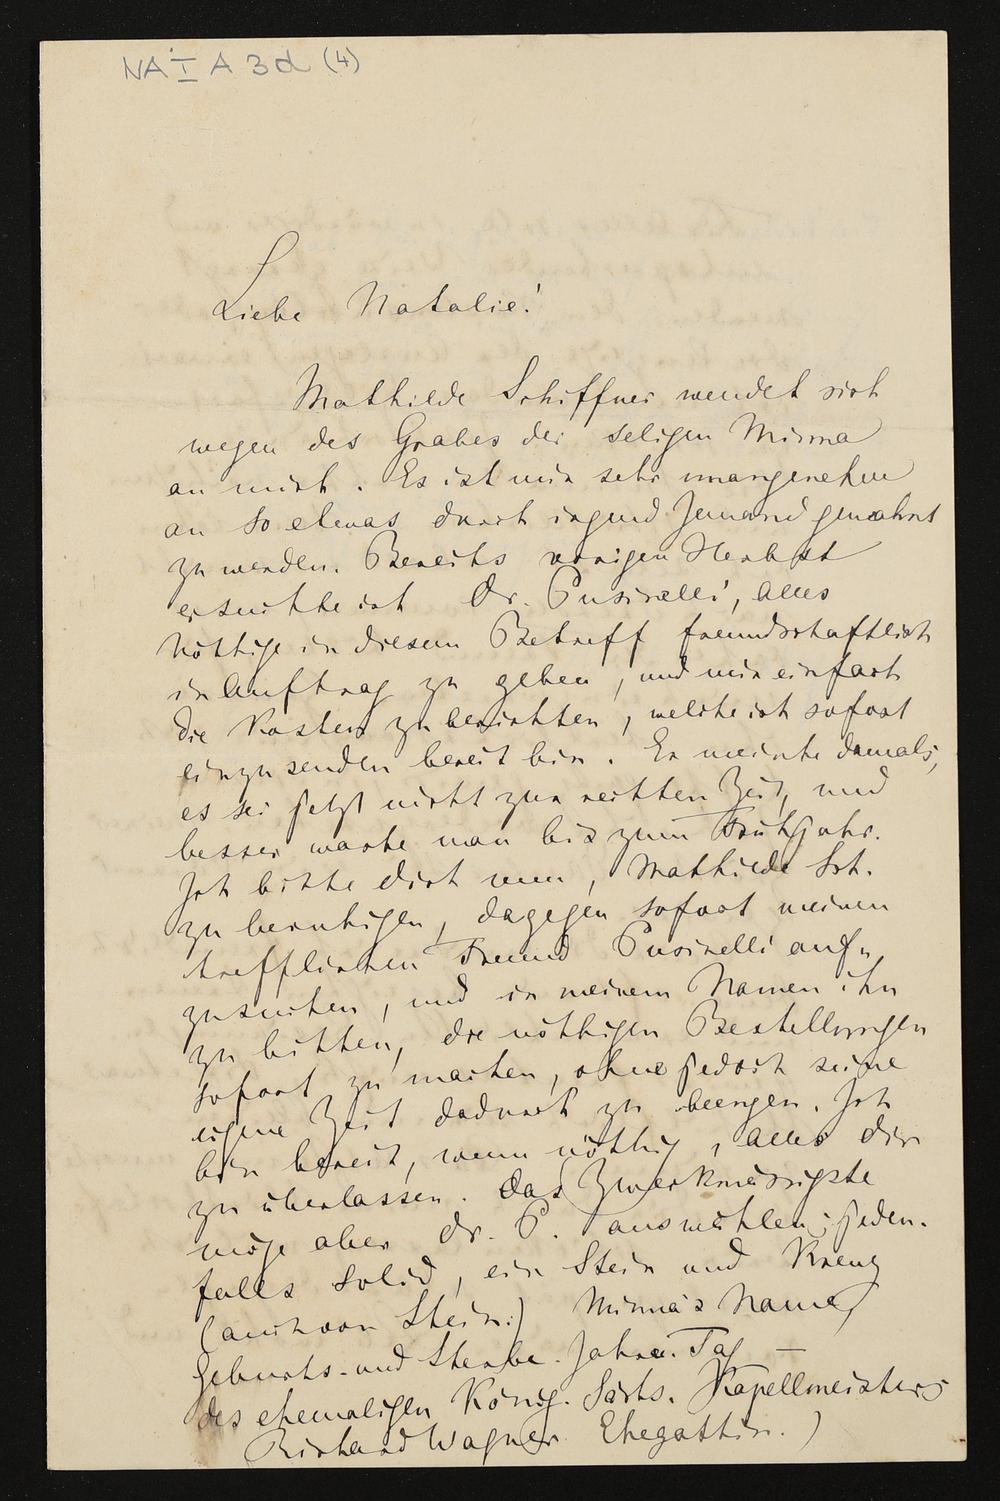 NA I A 3 d (4)
Liebe Natalie!
Mathilde Schiffner wendet sich
wegen des Grabes der seligen Minna
an mich. Es ist mir sehr unangenehm
an so etwas durch irgend Jemand gemahnt
zu werden. Bereits vorigen Herbst
ersuchte ich Dr. Pusinelli, alles
Nöthige in diesem Betreff freundschaftlich
in Auftrag zu geben, und mir einfach
die Kosten zu berichten, welche ich sofort
einzusenden bereit bin. Er meinte damals,
es sei jetzt nicht zur rechten Zeit, und
besser warte man bis zum Frühjahr.
Ich bitte dich nun, Mathilde Sch.
zu beruhigen, dagegen sofort meinen
trefflichen Freund Pusinelli auf-
zusuchen, und in meinem Namen ihn
zu bitten, die nöthigen Bestellungen
sofort zu machen, ohne jedoch seine
eigene Zeit dadurch zu beengen. Ich
bin bereit, wenn nöthig, alles dir
zu überlassen. Das Zweckmässigste
möge aber Dr. P. auswählen; jeden-
falls solid, ein Stein und Kreuz
(auch von Stein.) Minna's Name,
Geburts- und Sterbe-Jahr u. Tag —
des ehemaligen König. Sächs. Kapellmeisters
Richard Wagner Ehegattin.)